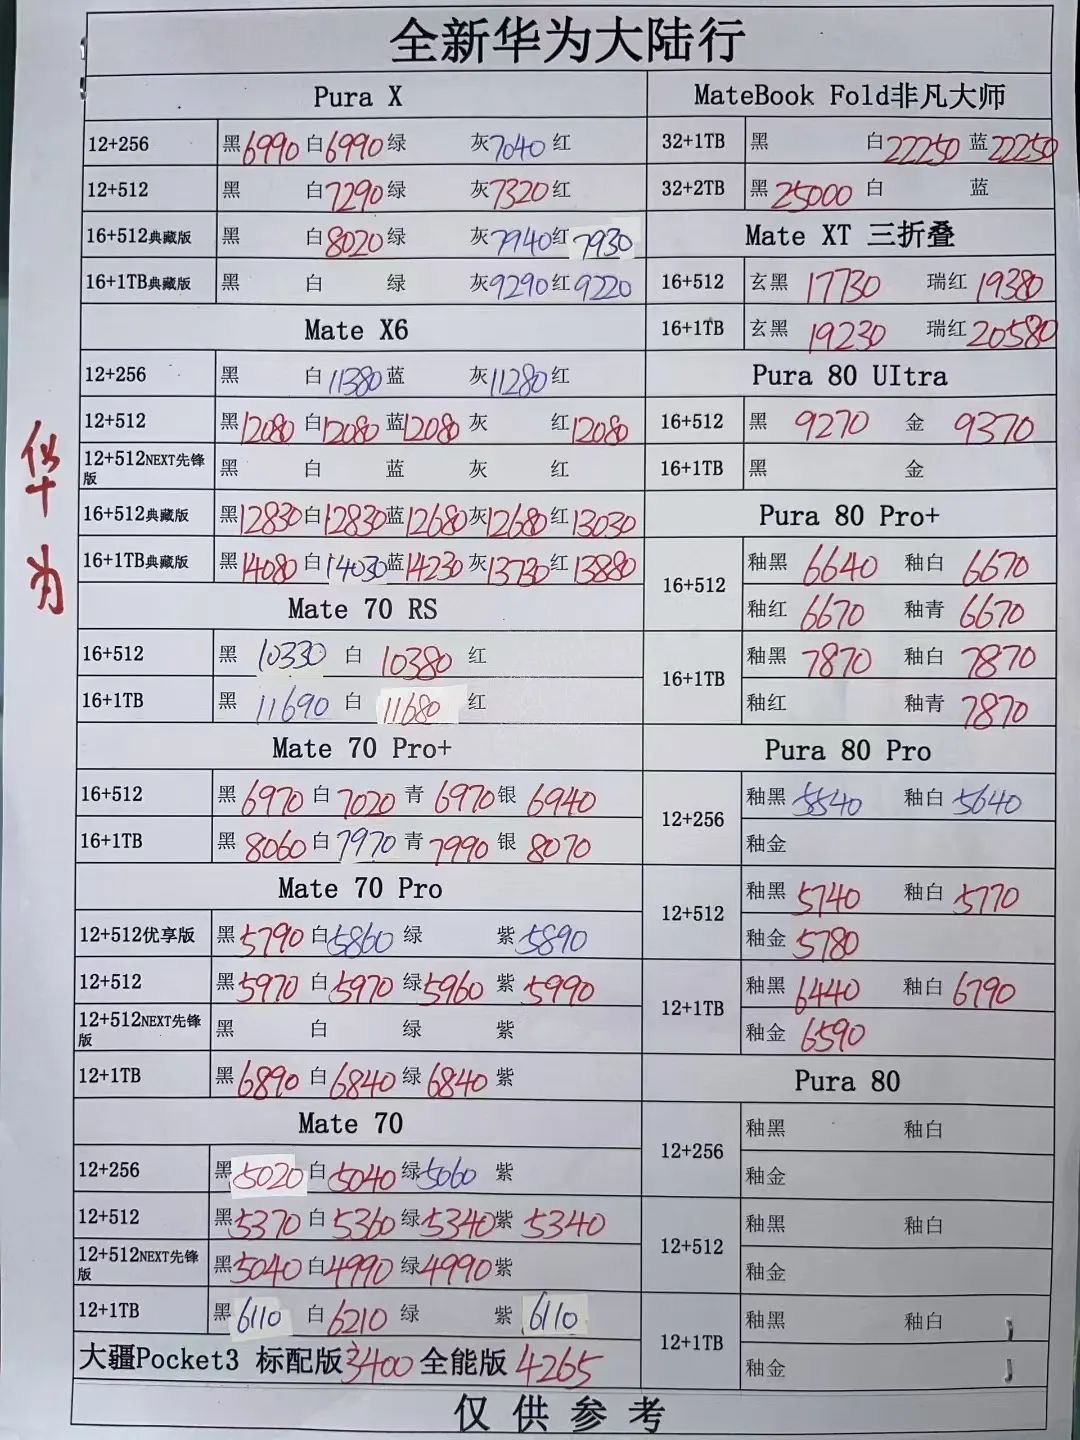 全新华为大陆行
华为
Pura X
12+256 黑6990 白6990 绿 灰7040 红
12+512 黑 白7290 绿 灰7320 红
16+512典藏版 黑 白8020 绿 灰7940 红7930
16+1TB典藏版 黑 白 绿 灰9290 红9220
Mate X6
12+256 黑 白11380 蓝 灰11280 红
12+512 黑12080 白12080 蓝12080 灰 红12080
12+512NEXT先锋版 黑 白 蓝 灰 红
16+512典藏版 黑12830 白12830 蓝12680 灰12680 红13030
16+1TB典藏版 黑14080 白14030 蓝14230 灰13730 红13880
Mate 70 RS
16+512 黑 10330 白 10380 红
16+1TB 黑 11690 白 11680 红
Mate 70 Pro+
16+512 黑 6970 白 7020 青 6970 银 6940
16+1TB 黑 8060 白 7970 青 7990 银 8070
Mate 70 Pro
12+512优享版 黑5790 白5860 绿 紫5890
12+512 黑5970 白5970 绿5960 紫5990
12+512NEXT先锋版 黑 白 绿 紫
12+1TB 黑6890 白6840 绿6840 紫
Mate 70
12+256 黑5020 白5040 绿5060 紫
12+512 黑5370 白5360 绿5340 紫5340
12+512NEXT先锋版 黑5040 白4990 绿4990 紫
12+1TB 黑6110 白6210 绿 紫6110
大疆Pocket3 标配版3400 全能版 4265
MateBook Fold非凡大师
32+1TB 黑 白22250 蓝22250
32+2TB 黑25000 白 蓝
Mate XT 三折叠
16+512 玄黑 17730 瑞红19380
16+1TB 玄黑 19230 瑞红20580
Pura 80 UItra
16+512 黑 9270 金 9370
16+1TB 黑 金
Pura 80 Pro+
16+512 釉黑 6640 釉白 6670
釉红 6670 釉青 6670
16+1TB 釉黑 7870 釉白 7870
釉红 釉青 7870
Pura 80 Pro
12+256 釉黑5540 釉白5640
釉金
12+512 釉黑5740 釉白5770
釉金5780
12+1TB 釉黑6440 釉白6790
釉金 6590
Pura 80
12+256 釉黑 釉白
釉金
12+512 釉黑 釉白
釉金
12+1TB 釉黑 釉白
釉金
仅供参考